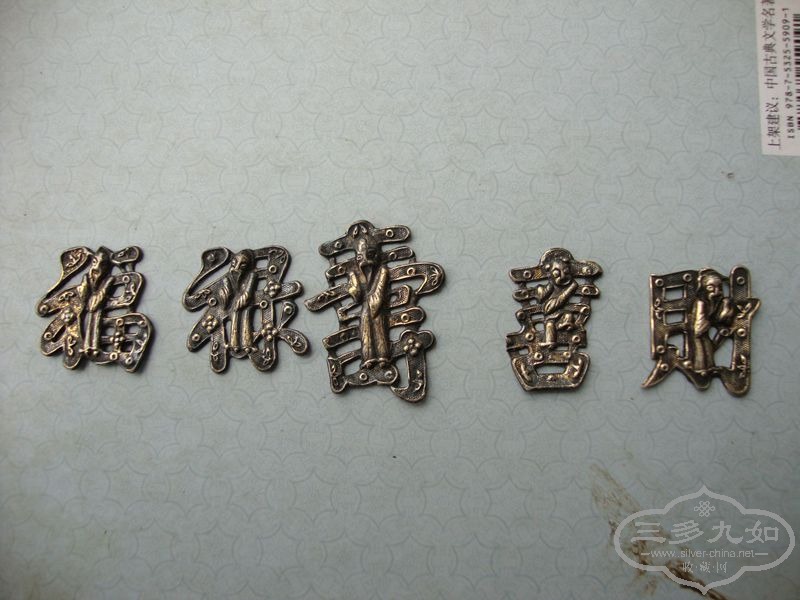 上架建议：中国古典文学名著
ISBN 978-7-5325-5909-1
福 禄 壽 喜 財
三多九如
www.silver-china.net
收·藏·网